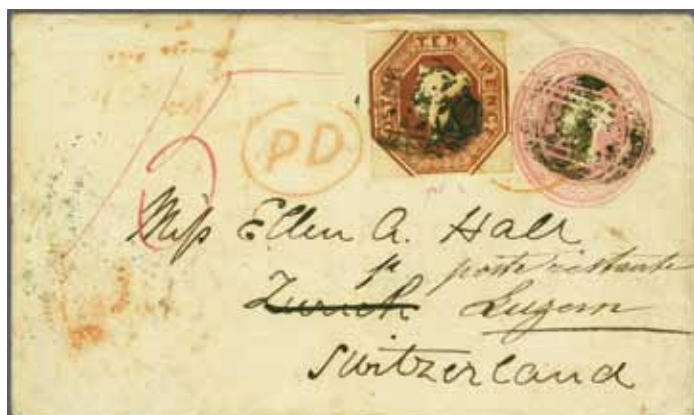 TEN PENCE
POSTAGE
PD
5
Miss Ellen A. Hall
poste restante
Zurich Luzern
Switzerland